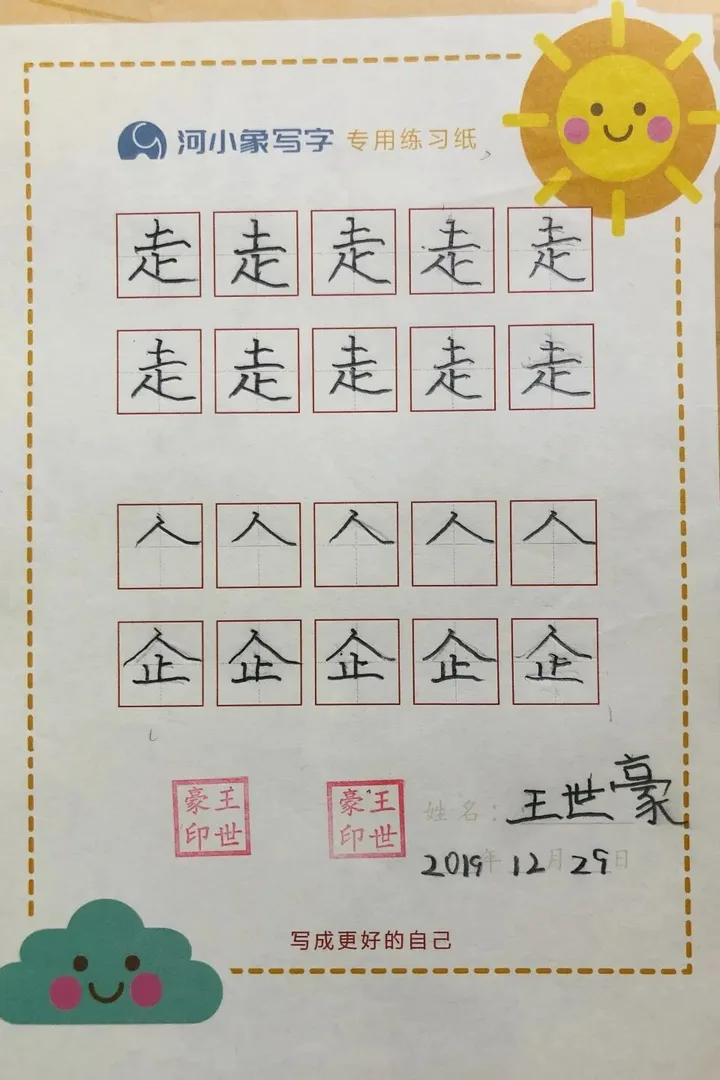 河小象写字 专用练习纸
走 走 走 走 走
走 走 走 走 走
人 人 人 人 人
企 企 企 企 企
豪王 豪王 姓名：王世豪
印世 印世
2019年 12月 29日
写成更好的自己